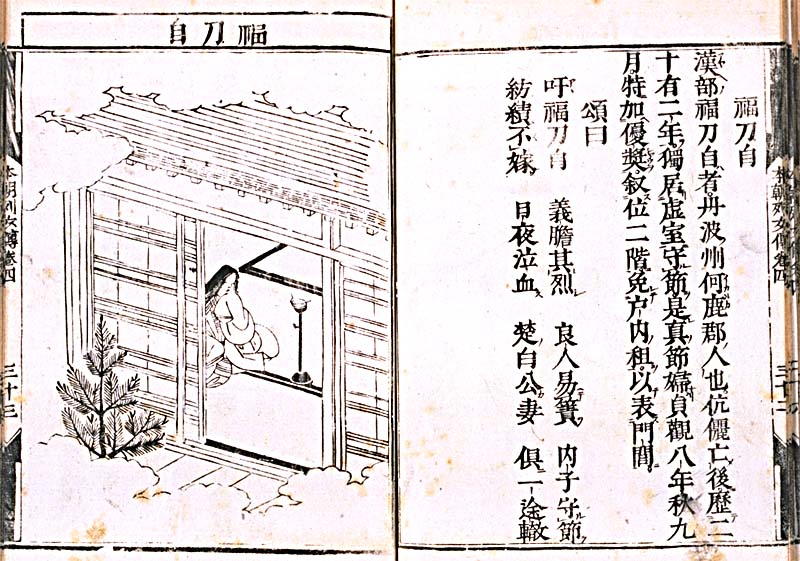 福刀自
漢部福刀自者丹波州何鹿郡人也伉儷亡後歷二
十有二年獨居虛室守節是真節婦貞觀八年秋九
月特加優獎叙位二階免户内租以表門閭
頌曰
吁福刀自 義膽其烈 良人易簀 内子守節
紡績不嫁 日夜泣血 楚白公妻 俱一途轍
福刀自
本朝列女傳卷四 三十三